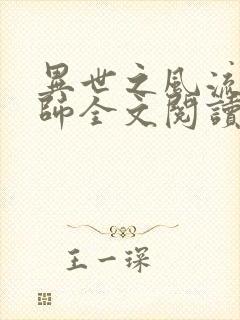 異世之風流
師全文閱讀
王一琛